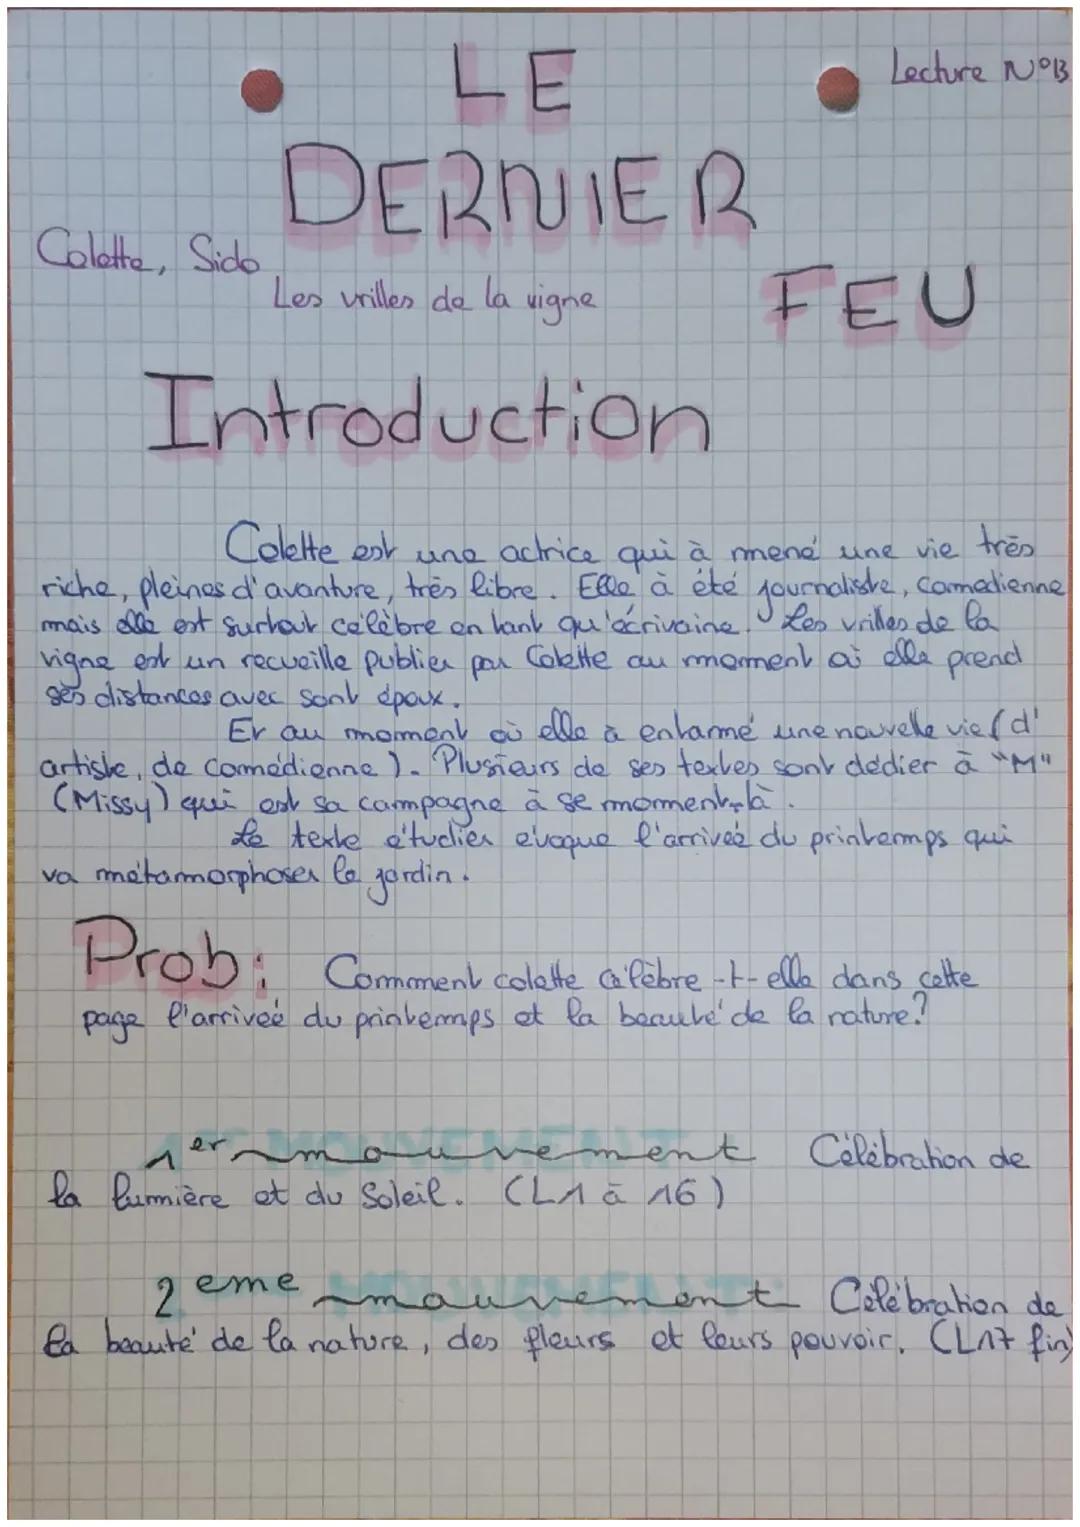 Lecture N°13
LE
DERNIER
FEU
Colette, Sido
Les vrilles de la vigne
Introduction
Colette est une actrice qui à mené une vie très
riche, pleines d'avanture, très libre. Elle à été journaliste, comédienne
mais elle est surtout célèbre en tant qu'écrivaine. Les vrilles de la
vigne est un recueille publier par Colette au moment où elle prend
ses distances avec sont époux.
Er au moment où elle à entamé une nouvelle vie (d'
artiste, de comédienne). Plusieurs de ses textes sont dédier à "M"
(Missy) qui est sa compagne à se moment-là.
Le texte étudier évoque l'arriveé du printemps qui
va métamorphoser le jardin.
Prob: Comment colette célèbre-t-elle dans cette
page l'arriveé du printemps et la beauté de la nature?
1er mouvement Célébration de
la lumière et du Soleil. (L1 à 16)
2eme mouvement Célébration de
la beauté de la nature, des fleurs et leurs pouvoir. (L17 fin)